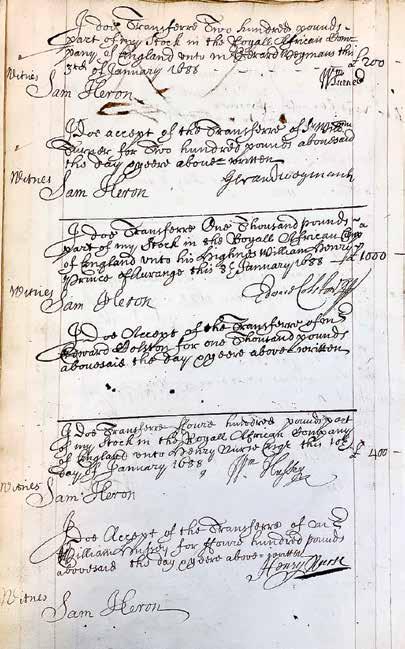 I doe Transferre Two hundred pounds
part of my Stock in the Royall African Com-
pany of England unto Mr Gerard Weymans this
3rd of January 1688 £ 200
Wm Turner
Witnes
Sam Heron
I Doe accept of the Transferre of Sr Wm
Turner for Two hundred pounds abovesaid
the day & yeere above written
Witnes Gerard Weymans
Sam Heron
I doe Transferre One Thousand pounds
part of my Stock in the Royall African Comp
of England unto his Highnes William Henry £ 1000
Prince of Aurange this 3d January 1688
Witnes Edward Colston
Sam Heron
I Doe Accept of the Transferre of Mr
Edward Colston for one Thousand pounds
abovesaid the day & yeere above written
I Doe Transferre Foure hundred pounds part
of my Stock in the Royall African Company
of England unto Henry Nurse Esqr this 10th £ 400
day of January 1688
Wm Hussey
Witnes
Sam Heron
I Doe Accept of the Transferre of Mr
William Hussey for Foure hundred pounds
abovesaid the day & yeere above written
Henry Nurse
Witnes
Sam Heron